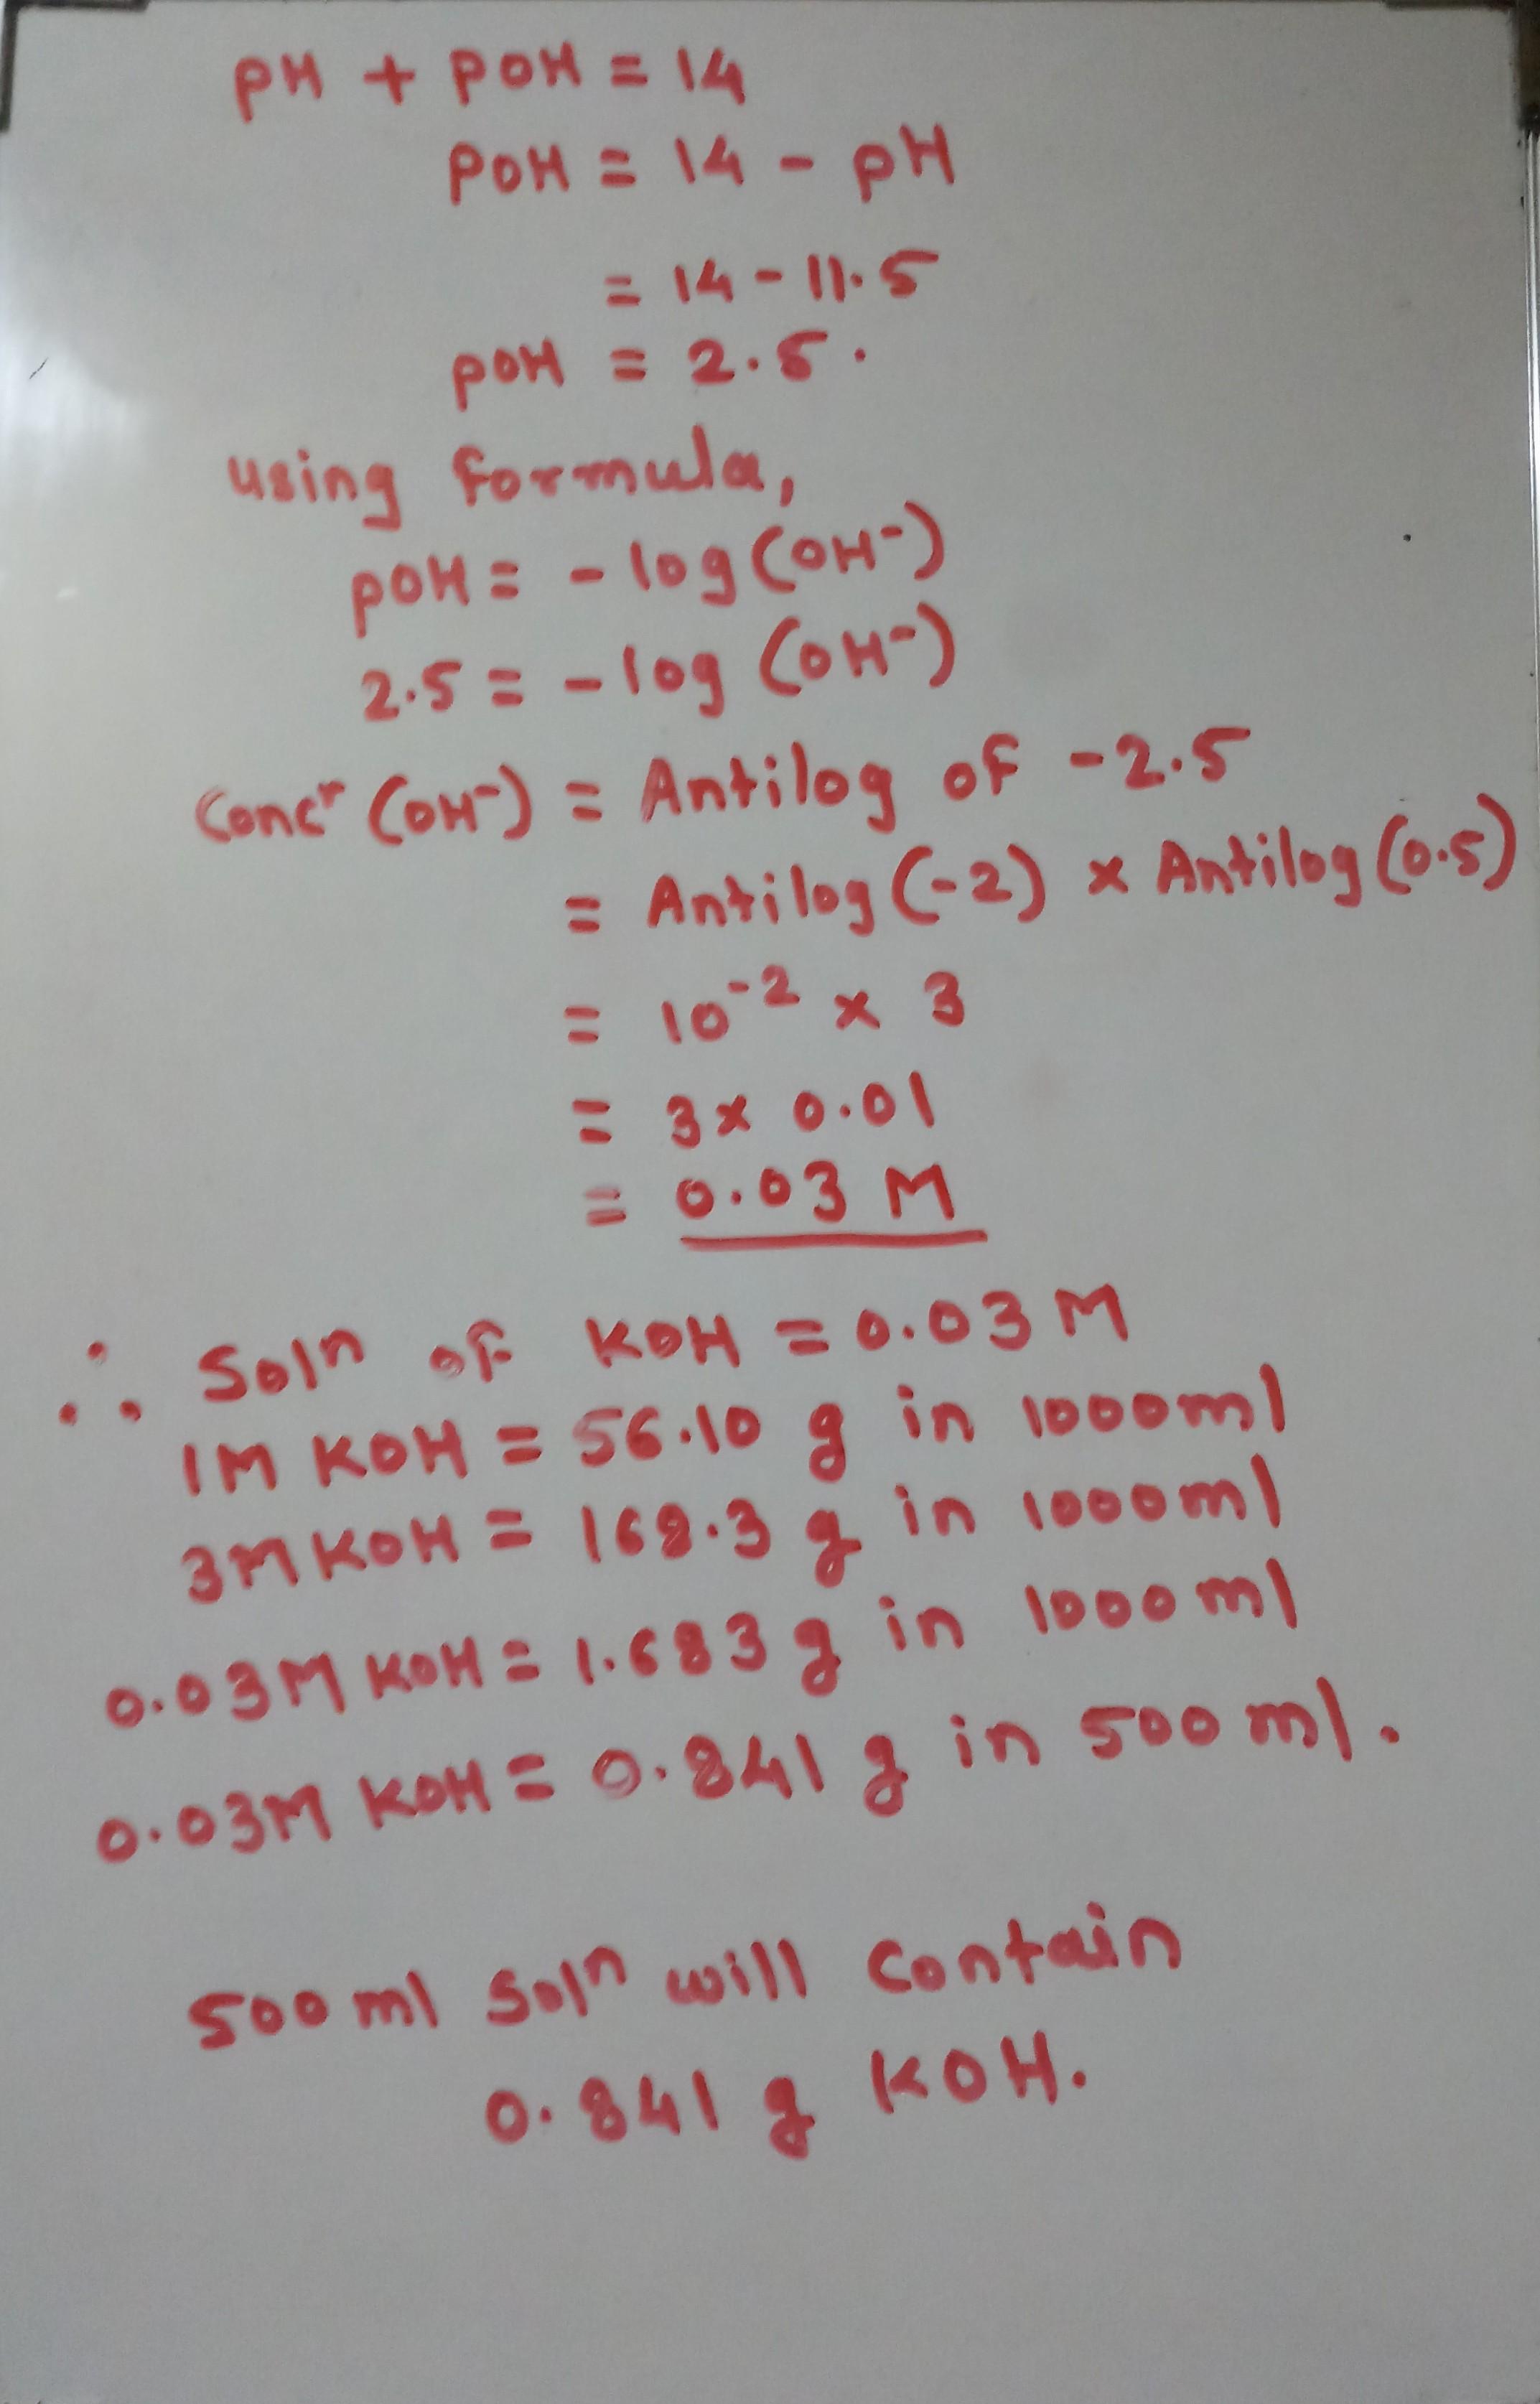 pH + pOH = 14
pOH = 14 - pH
= 14 - 11.5
pOH = 2.5.
using formula,
pOH = - log (OH⁻)
2.5 = - log (OH⁻)
Concⁿ (OH⁻) = Antilog of -2.5
= Antilog (-2) × Antilog (0.5)
= 10⁻² × 3
= 3 × 0.01
= 0.03 M
∴ Solⁿ of KOH = 0.03 M
1M KOH = 56.10 g in 1000ml
3M KOH = 168.3 g in 1000ml
0.03M KOH = 1.683 g in 1000ml
0.03M KOH = 0.841 g in 500 ml.
500 ml Solⁿ will Contain
0.841 g KOH.